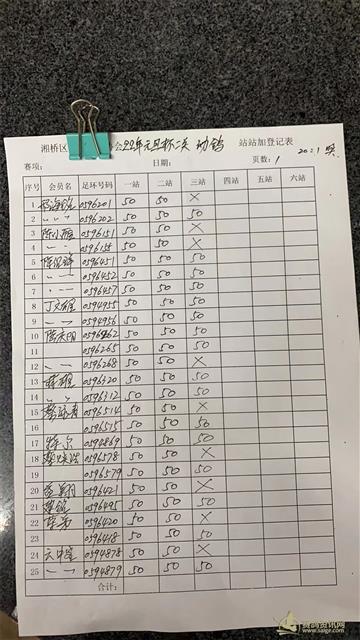 湘桥区 会22年元旦杯二关 幼鸽 站站加登记表 20:1
赛项: 日期: 页数: 1
序号 会员名 足环号码 一站 二站 三站 四站 五站 六站
1 0596201 50 50 ×
2 〃 0596202 50 50 50
3 陈小雁 0596151 50 50 ×
4 〃 0596155 50 50 ×
5 0596451 50 50 50
6 〃 0596452 50 50 50
7 〃 0596457 50 50 50
8 丁文雄 0594955 50 50 50
9 〃 0594956 50 50 50
10 陈庆明 0596262 50 50 50
11 0596265 50 50 50
12 〃 0596268 50 50 ×
13 0596320 50 50 50
14 〃 0596312 50 50 50
15 0596514 50 50 ×
16 0596515 50 50 50
17 0594869 50 50 50
18 0596578 50 50 ×
19 0596579 50 50 50
20 0596421 50 50 ×
21 0596495 50 50 50
22 0596420 50 50 ×
23 0596418 50 50 50
24 0594878 50 50 ×
25 〃 0594879 50 50 50
合计:
赛鸽资讯网
www.saige.com